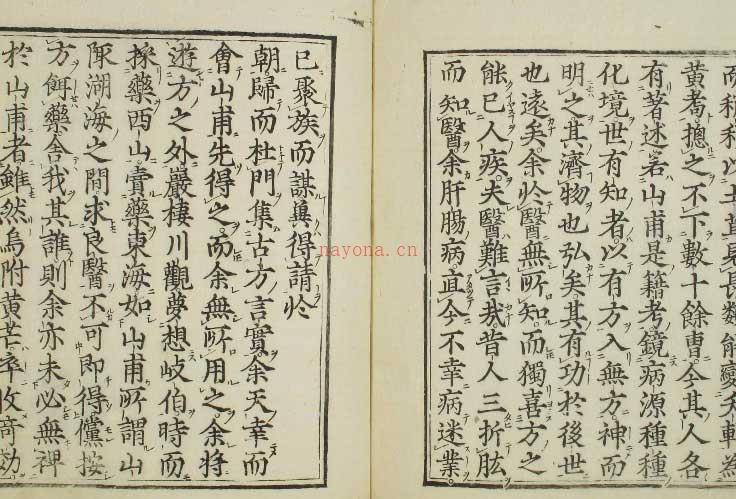 而
黄耈摠之不下數十餘曹今其人各
有著述若山甫是籍考鏡病源種種
化境世有知者以有方入無方神而
明之其濟物也弘矣其有功於後世
也遠矣余於醫無所知而獨喜方之
能已人疾夫醫難言哉昔人三折肱
而知醫余肝腸病直今不幸病迷業
已聚族而謀冀得請於
朝歸而杜門集古方言實余天幸而
會山甫先得之而余無所用之余将
遊方之外嚴棲川觀夢想岐伯時而
採藥西山賣藥東海如山甫所謂山
陬湖海之間求良醫不可即得儻按
方餌藥舍我其誰則余亦未必無裨
於山甫者雖然烏附黄芒卒收竒効
nayona.cn